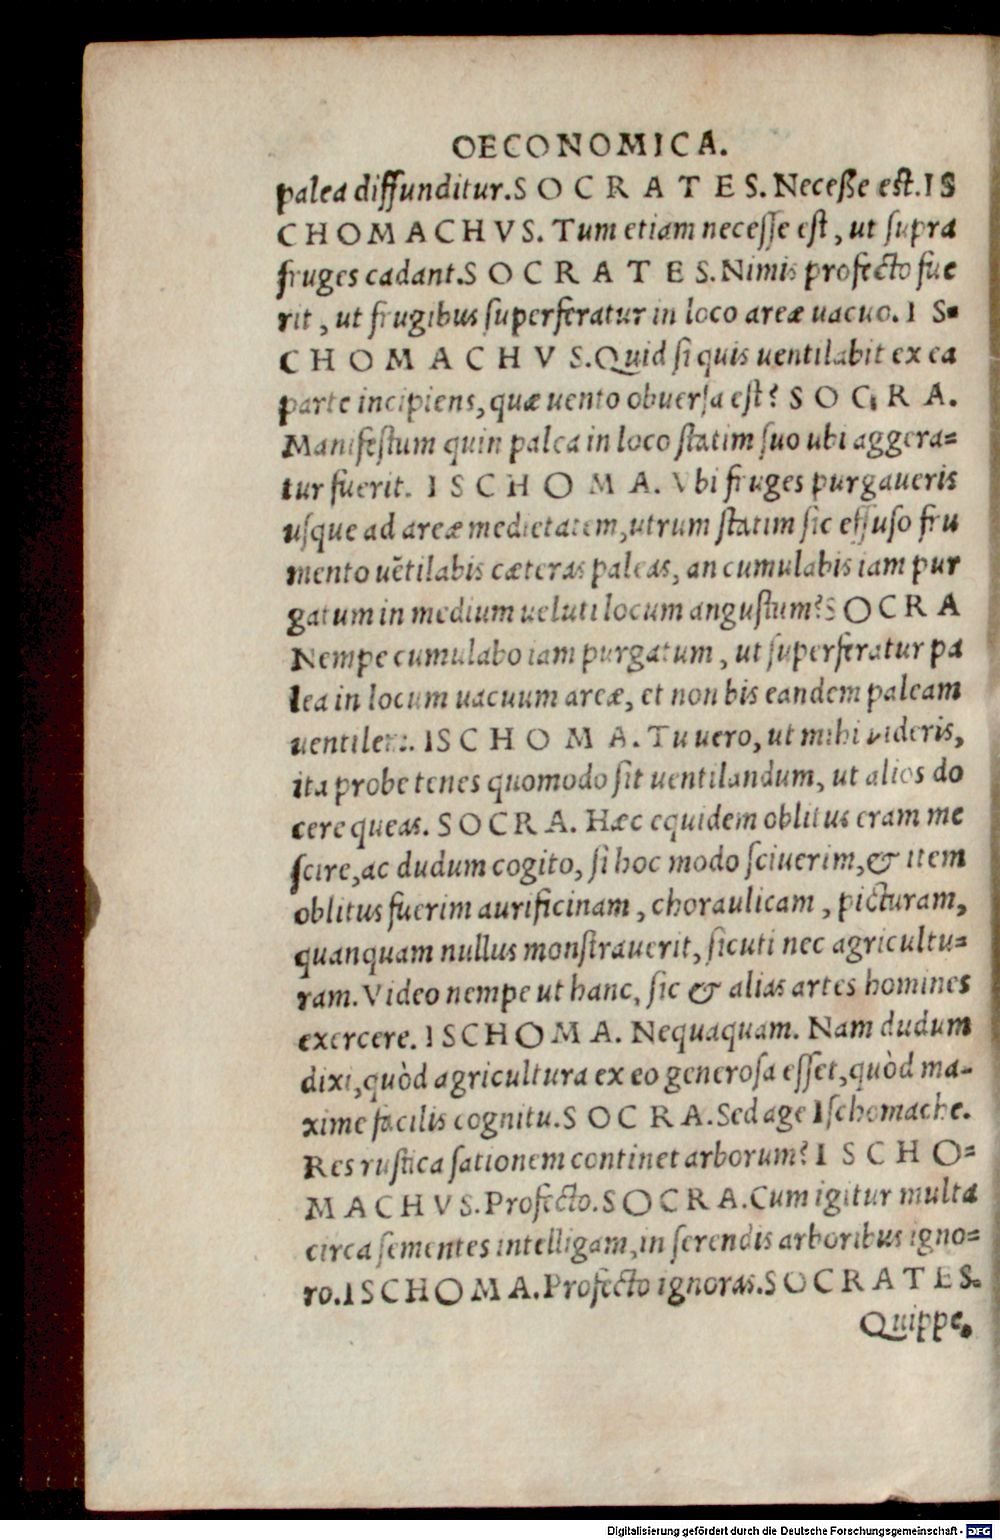 OECONOMICA.
palea diffunditur. SOCRATES. Necesse est. IS
CHOMACHVS. Tum etiam necesse est, ut supra
fruges cadant. SOCRATES. Nimis profecto fue
rit, ut frugibus superferatur in loco areæ uacuo. IS-
CHOMACHVS. Quid si quis uentilabit ex ea
parte incipiens, quæ uento obuersa est? SOCRA.
Manifestum quin palea in loco statim suo ubi aggera=
tur fuerit. ISCHOMA. Vbi fruges purgaueris
usque ad areæ medietatem, utrum statim sic effuso fru
mento uẽtilabis cæteras paleas, an cumulabis iam pur
gatum in medium ueluti locum angustum? SOCRA
Nempe cumulabo iam purgatum, ut superferatur pa
lea in locum uacuum areæ, et non bis eandem paleam
uentilem. ISCHOMA. Tu uero, ut mihi uideris,
ita probe tenes quomodo sit uentilandum, ut alios do
cere queas. SOCRA. Hæc equidem oblitus eram me
scire, ac dudum cogito, si hoc modo sciuerim, & item
oblitus fuerim aurificinam, choraulicam, picturam,
quanquam nullus monstrauerit, sicuti nec agricultu=
ram. Video nempe ut hanc, sic & alias artes homines
exercere. ISCHOMA. Nequaquam. Nam dudum
dixi, quòd agricultura ex eo generosa esset, quòd ma-
xime facilis cognitu. SOCRA. Sed age Ischomache.
Res rustica sationem continet arborum? ISCHO=
MACHVS. Profecto. SOCRA. Cum igitur multa
circa sementes intelligam, in serendis arboribus igno=
ro. ISCHOMA. Profecto ignoras. SOCRATES.
Quippe.
Digitalisierung gefördert durch die Deutsche Forschungsgemeinschaft - DFG